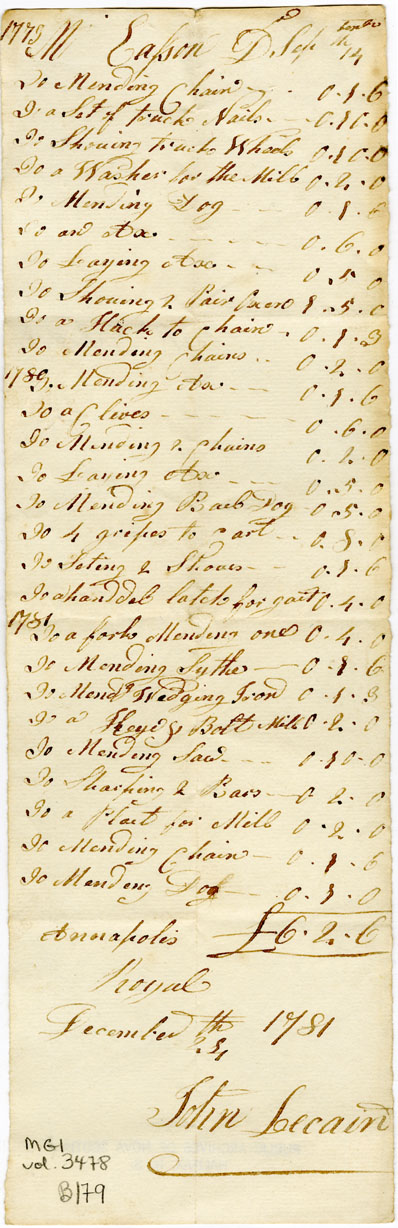 1779 Mr Easson Dr Sep tember th 14
To Mending Chain 0.1.6
To a Set of truck Nails 0.10.0
To Shouing truck Wheels 0.10.0
To a Washer for the Mill 0.2.0
To Mending Dog 0.1.6
To an Ax 0.6.0
To Laying Ax 0.5.0
To Shouing 2 Pair Oxen 1.5.0
To a Hack to Chain 0.1.3
To Mending Chains 0.2.0
1780 To Mending Ax 0.1.6
To a Clives 0.6.0
To Mending 2 Chains 0.2.0
To Laying Ax 0.5.0
To Mending Dog 0.5.0
To 4 gripes to Cart 0.8.0
To Seting 2 Shoues 0.1.6
To a handdel latch for gait 0.4.0
1781 To a fork Mending one 0.4.0
To Mending Sythe 0.1.6
To Mendg Wedging Iron 0.1.3
To a Keyd Bolt Mill 0.2.0
To Mending Saw 0.10.0
To Sharping 2 Bars 0.2.0
To a Plaet for Mill 0.2.0
To Mending Chain 0.1.6
To Mending Dog 0.1.0
£6.2.6
Annapolis
Royal
December th 1781
24
John Lecain
MG1
vol. 3478
B179